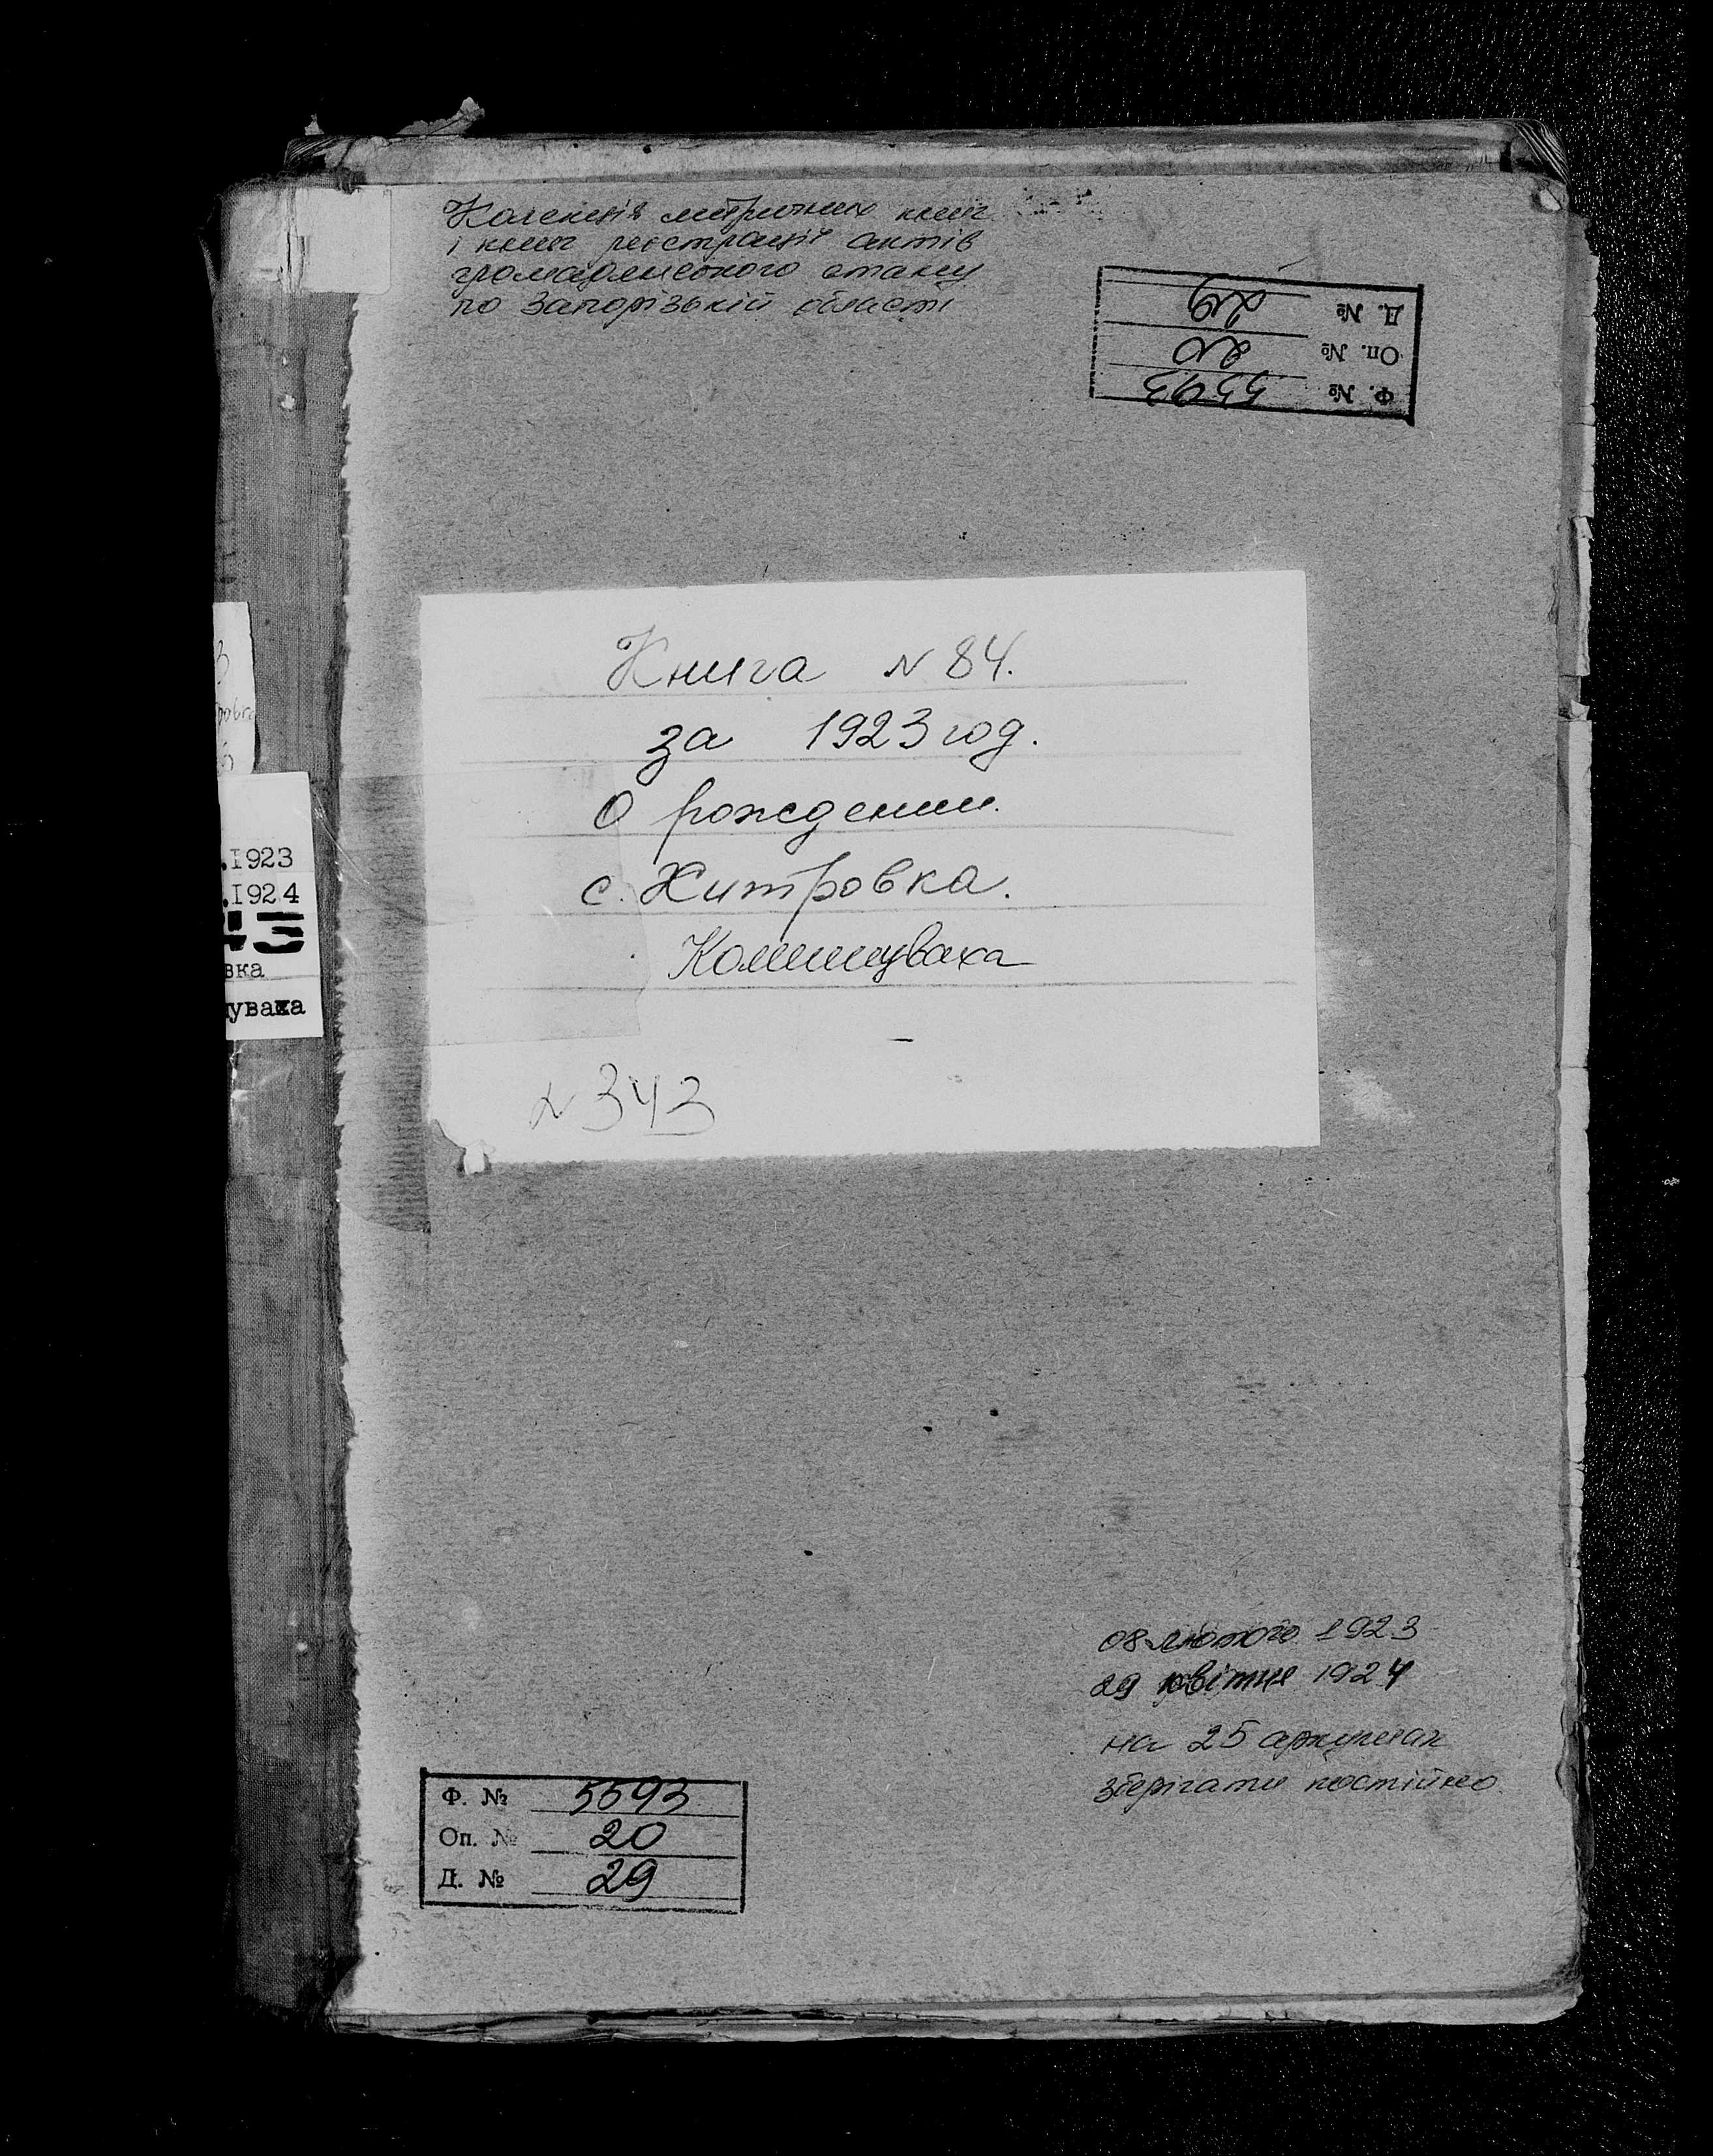 Колекція метричних книг
і книг реєстрації актів
громадянського стану
по Запорізькій області
Д. № 29
Оп. № 20
Ф. № 5593
Книга N 84.
за 1923 год.
О рождении.
с. Хитровка.
Комишуваха
N 343
.1923
.1924
вка
уваха
08 лютого 1923
29 квітня 1924
на 25 аркушах
зберігати постійно
Ф. № 5593
Оп. № 20
Д. № 29